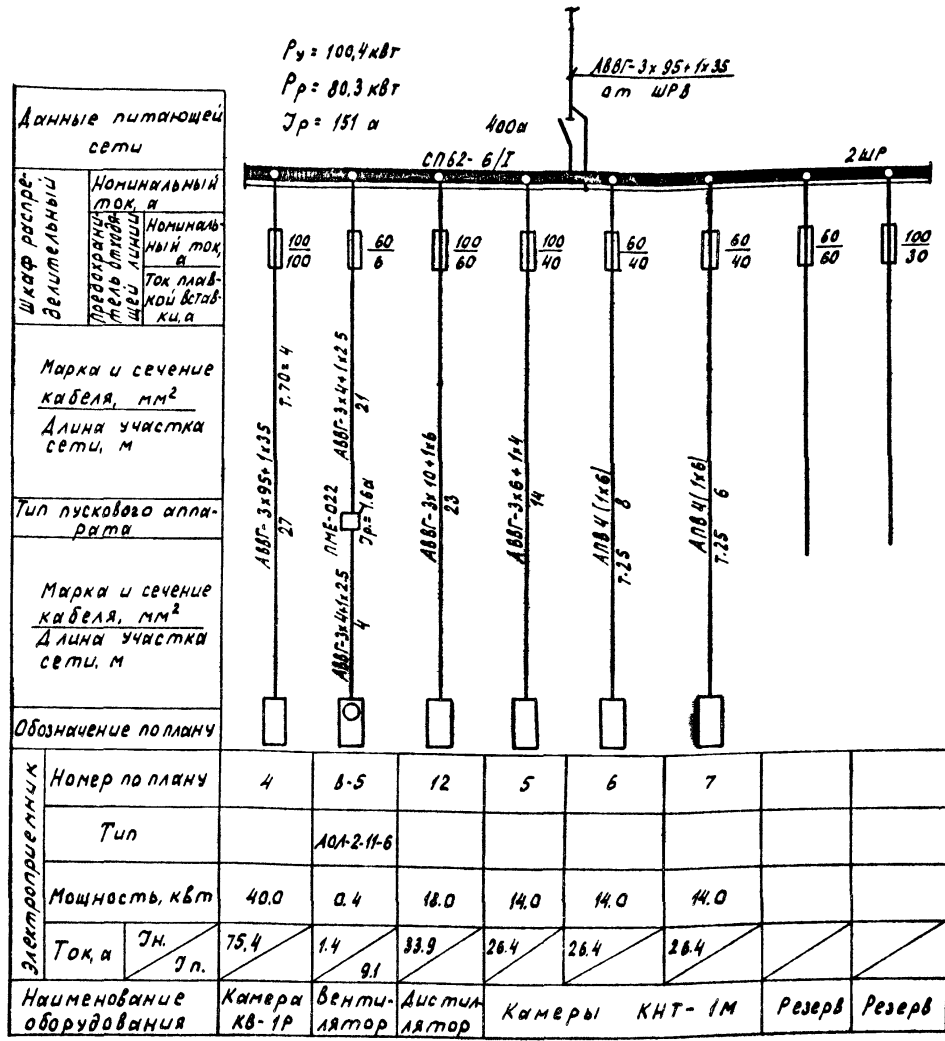 Ру = 100,4 квт
Рр = 80,3 квт
Jр = 151 а
АВВГ-3х95+1х35
от ШРВ
400а
СП62-6/I
2ШР
Данные питающей
сети
Шкаф распре-
делительный
Номинальный
ток, а
Предохрани-
тель отходя-
щей линии
Номиналь-
ный ток,
а
Ток плав-
кой встав-
ки, а
100
100
60
6
100
60
100
40
60
40
60
40
60
60
100
30
Марка и сечение
кабеля, мм²
Длина участка
сети, м
Тип пускового аппа-
рата
Марка и сечение
кабеля, мм²
Длина участка
сети, м
Обозначение по плану
АВВГ-3х95+1х35
27
Т.70=4
АВВГ-3х4+1х2.5
21
ПМЕ-022
Jр.=1.6а
АВВГ-3х4+1х2.5
4
АВВГ-3х10+1х6
23
АВВГ-3х6+1х4
14
АПВ 4(1х6)
8
Т.25
АПВ 4(1х6)
6
Т.25
Электроприемник
Номер по плану 4 В-5 12 5 6 7
Тип АОЛ-2-11-6
Мощность, квт 40.0 0.4 18.0 14.0 14.0 14.0
Ток, а Jн. Jп. 75.4 1.4 9.1 33.9 26.4 26.4 26.4
Наименование
оборудования
Камера
КВ-1Р
Венти-
лятор
Дистил-
лятор
Камеры КНТ-1М
Резерв
Резерв